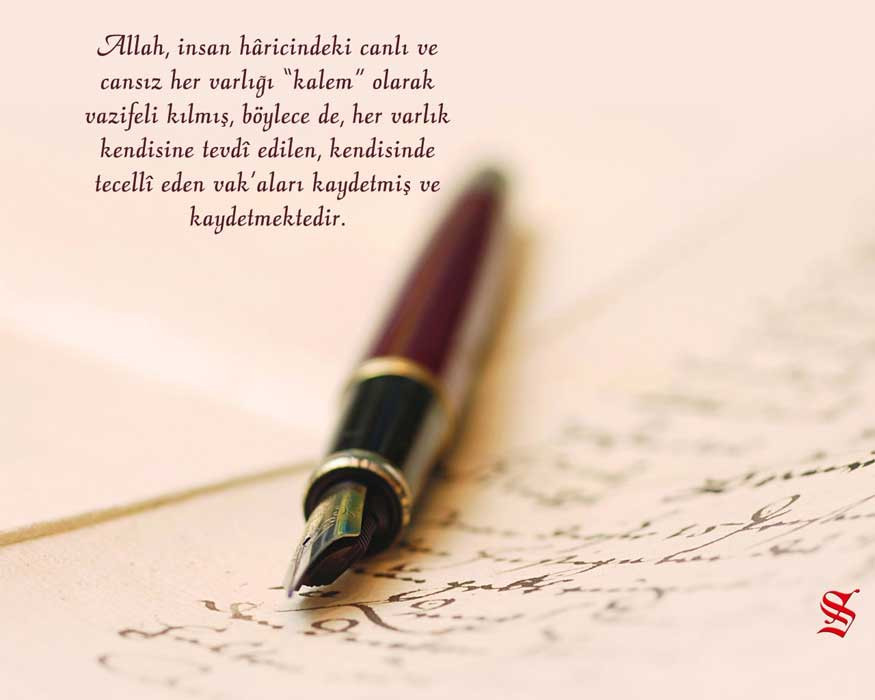 Allah, insan hâricindeki canlı ve
cansız her varlığı “kalem” olarak
vazifeli kılmış, böylece de, her varlık
kendisine tevdî edilen, kendisinde
tecellî eden vak’aları kaydetmiş ve
kaydetmektedir.
S